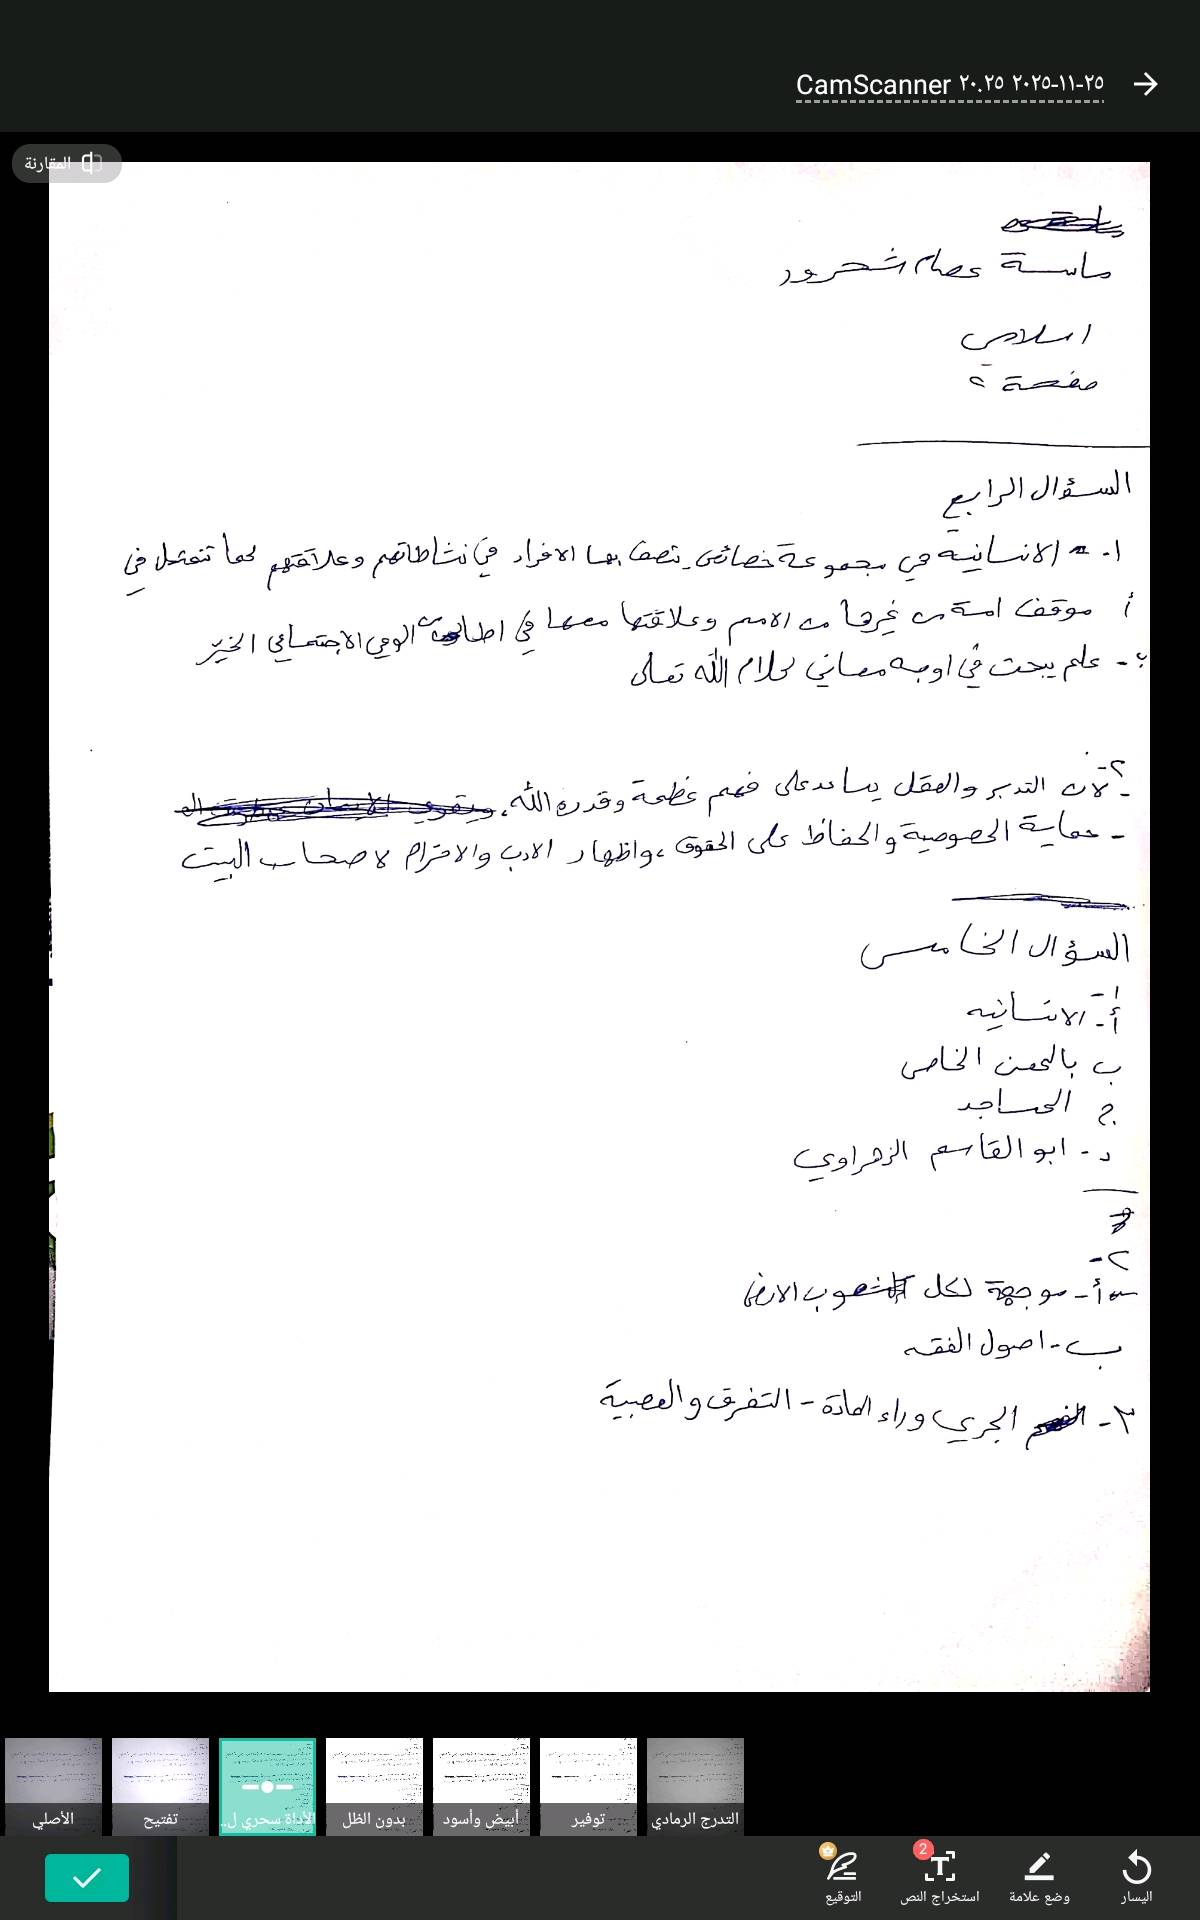 CamScanner ٢٠٢٥-١١-٢٥ ٢٠.٢٥
المقارنة
ماسة عصام شحرور
اسلامي
صفحة ٢
السؤال الرابع
١- الانسانية هي مجموعة خصائص تصف بها الافراد في نشاطاتهم وعلاقتهم كما تتمثل في
أ موقف امة من غيرها من الامم وعلاقتها معها في اطار الوعي الاجتماعي الخيّر
ب- علم يبحث في اوجه معاني كلام الله تعالى
٢-
- لان التدبر والعقل يساعد على فهم عظمة وقدره الله،
- حماية الخصوصية والحفاظ على الحقوق، واظهار الادب والاحترام لاصحاب البيت
السؤال الخامس
١-
أ- الانسانيه
ب بالحسن الخاص
ج المساجد
د- ابو القاسم الزهراوي
٢-
أ- موجهة لكل شعوب الارض
ب- اصول الفقه
٣- الجري وراء المادة - التفرق والعصبية
الأصلي
تفتيح
الأداة سحري ل...
بدون الظل
أبيض وأسود
توفير
التدرج الرمادي
اليسار
وضع علامة
استخراج النص
2
التوقيع